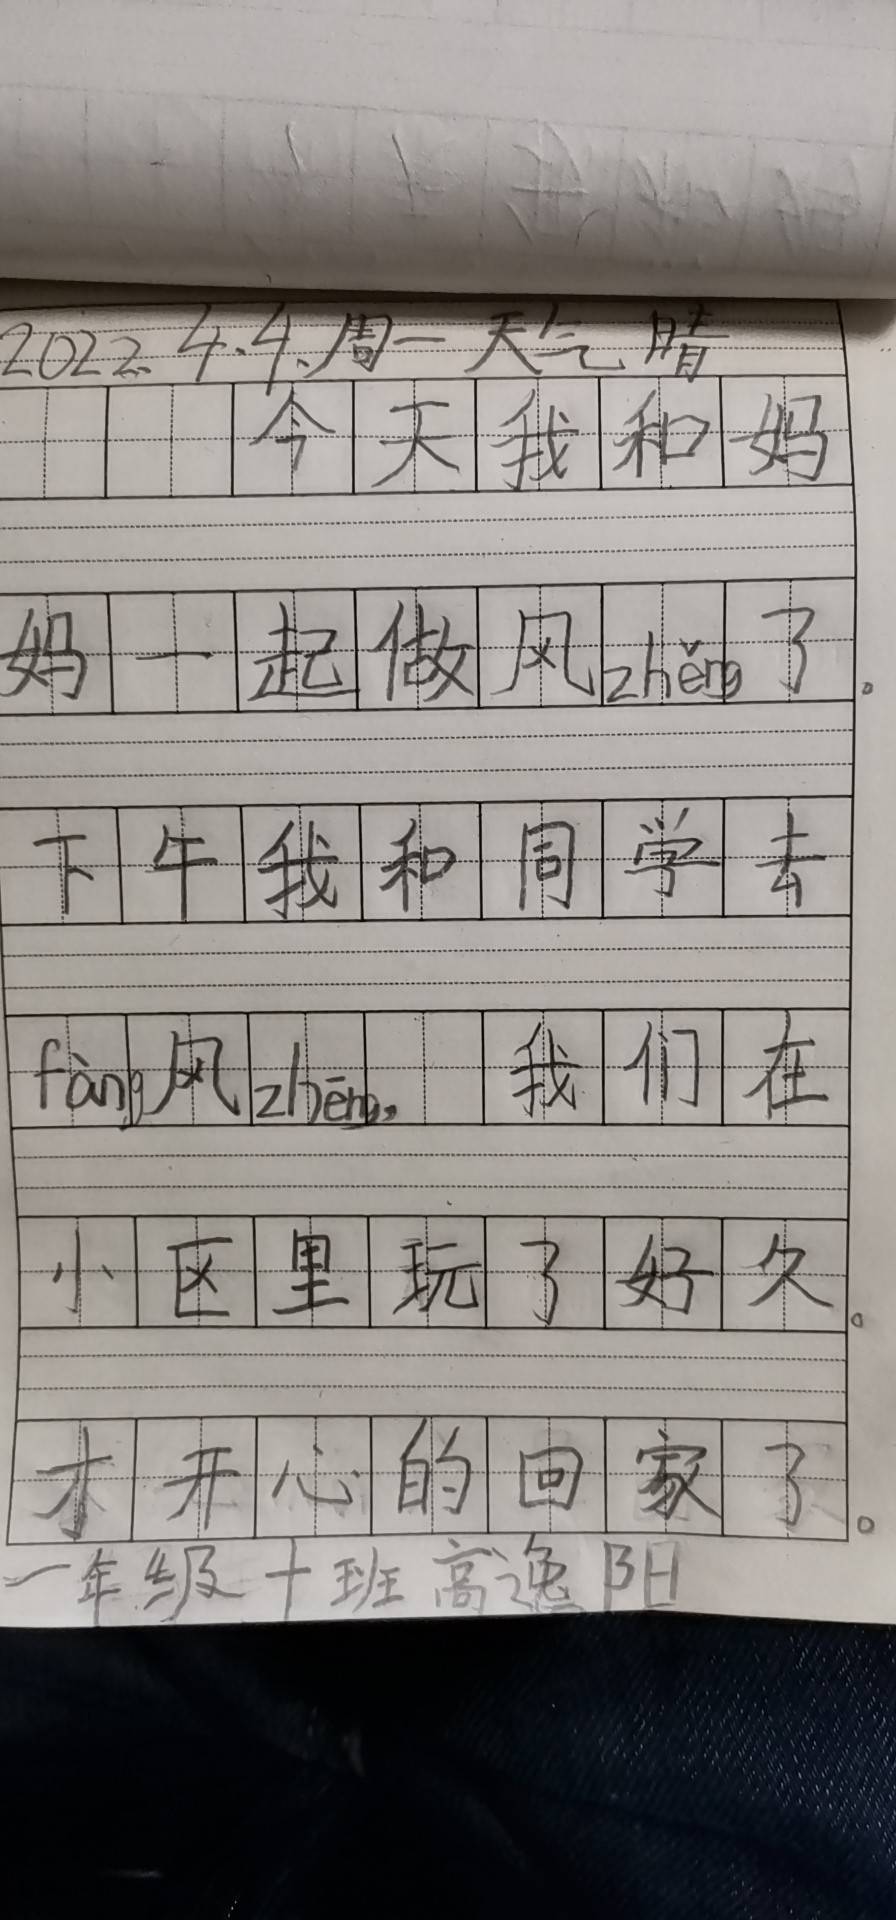 2022.4.4.周一天气晴
今天我和妈
妈一起做风zhěng了。
下午我和同学去
fàng风zhēng,我们在
小区里玩了好久。
才开心的回家了。
一年级十班高逸阳